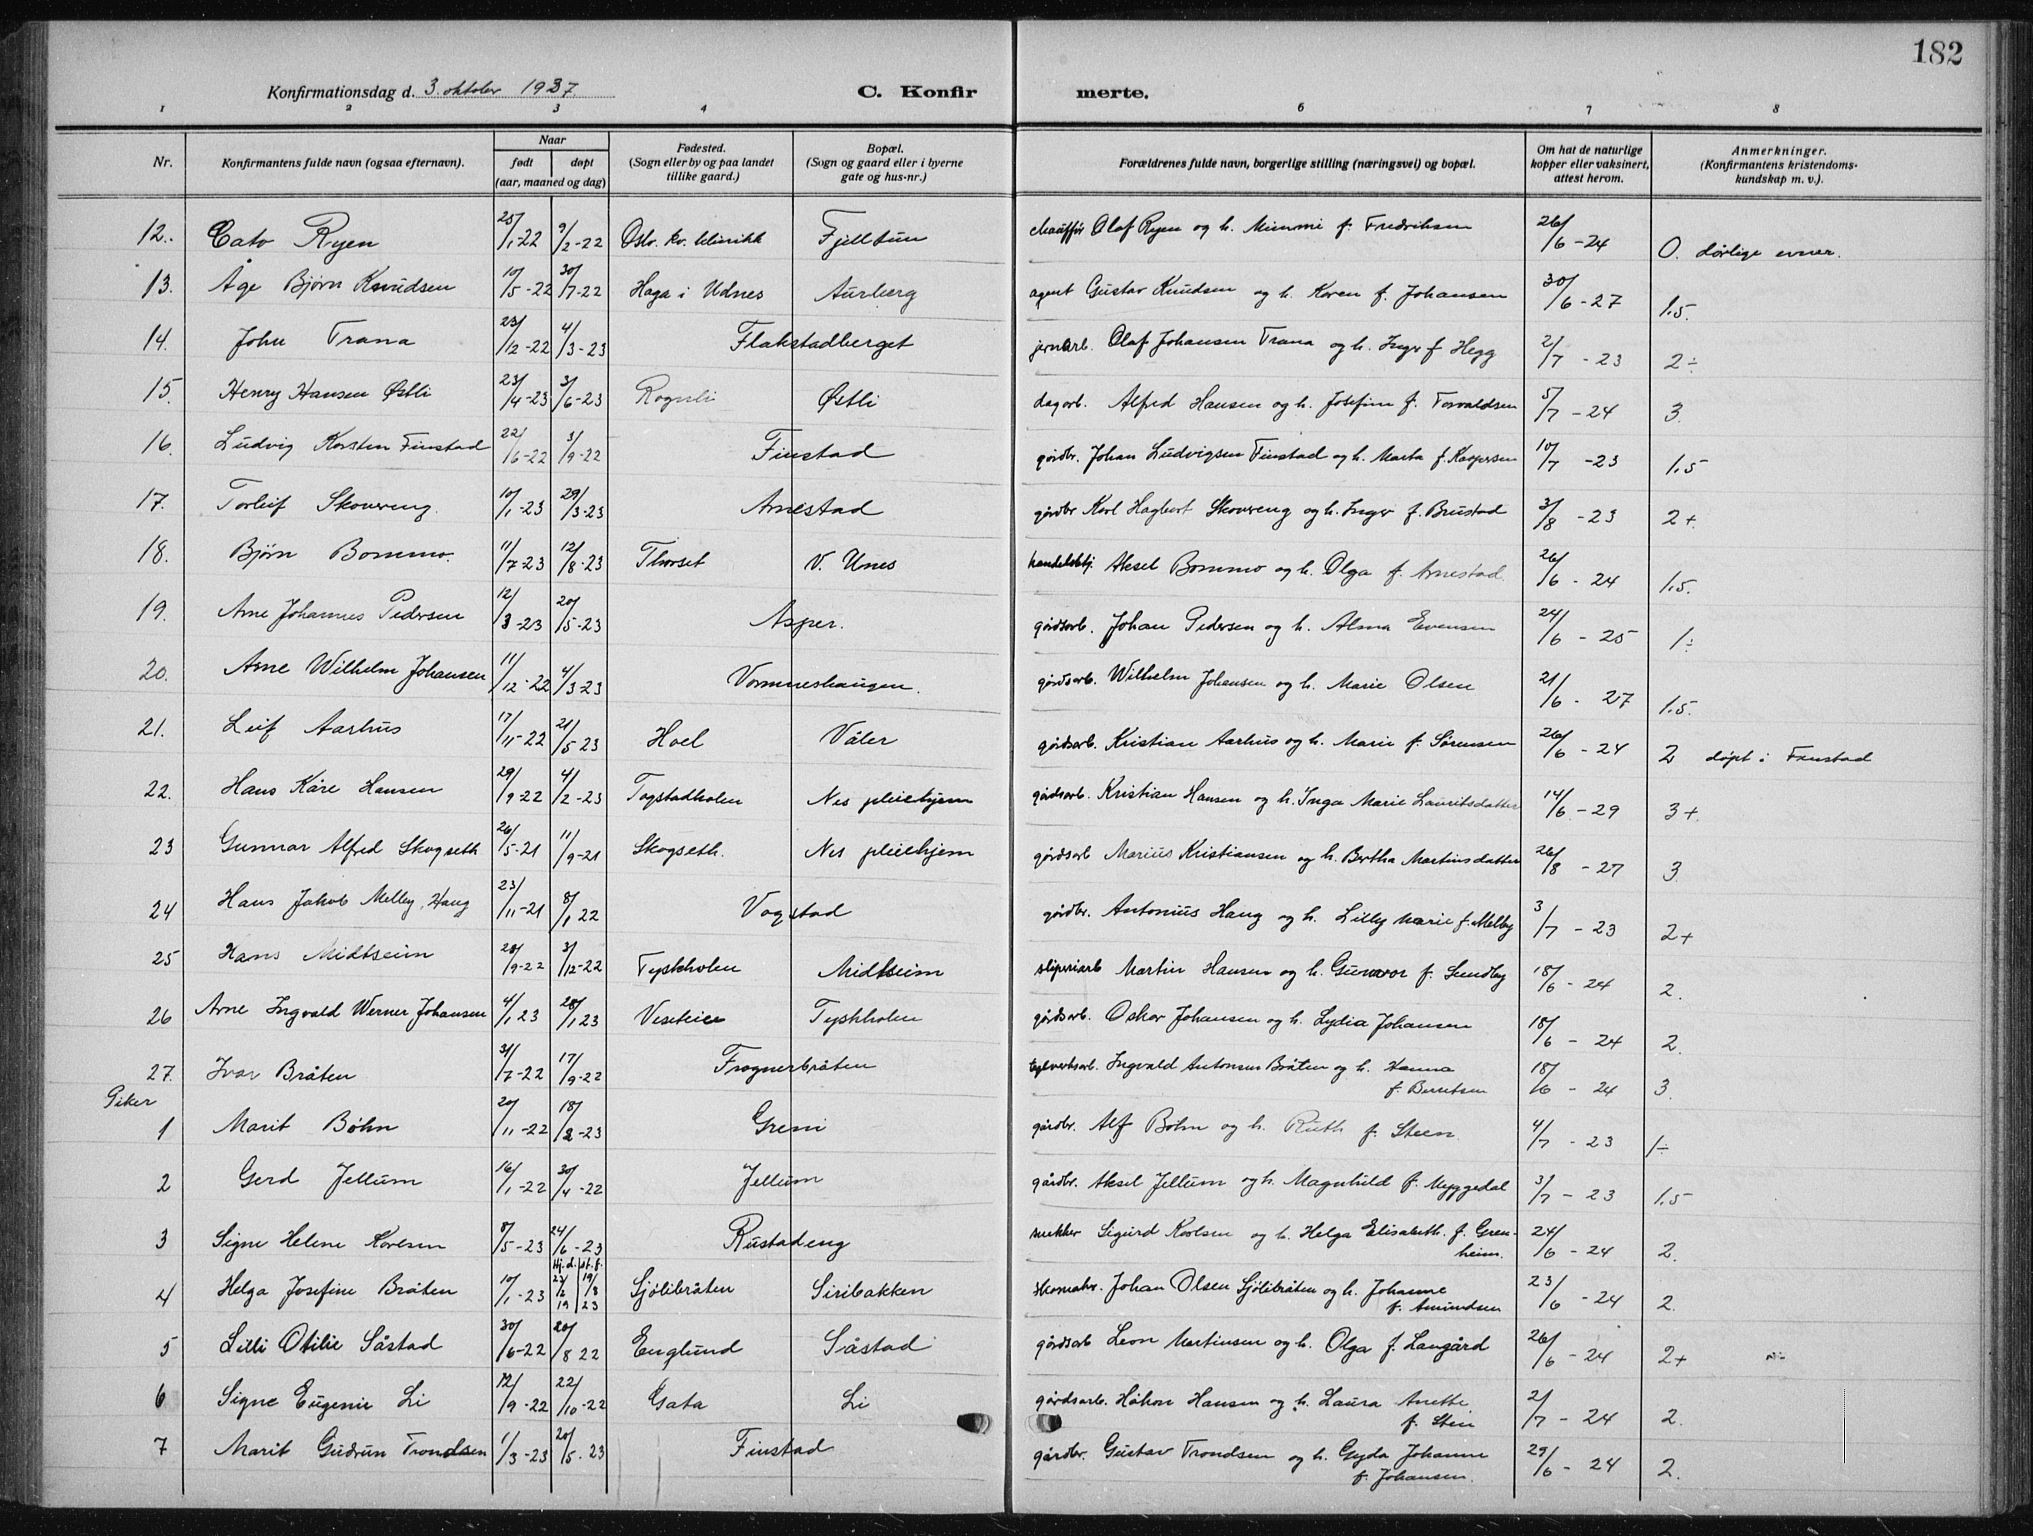 182
Konfirmationsdag d. 3. oktober 1937.
C. Konfir merte.
1 2 3 4 6 7 8
Nr. Konfirmantens fulde navn (ogsaa efternavn). Naar født døpt (aar, maaned og dag) Fødested. (Sogn eller by og paa landet tillike gaard.) Bopæl. (Sogn og gaard eller i byerne gate og hus-nr.) Forældrenes fulde navn, borgerlige stilling (næringsvei) og bopæl. Om hat de naturlige kopper eller vaksinert, attest herom. Anmerkninger. (Konfirmantens kristendoms-kundskap m. v.).
12. Cato Ryen 25/1-22 9/2-22 Oslo kv. klinikk Fjelltun chauffør Olaf Ryen og h. Mimmi f. Fredriksen 26/6-24 0. dårlige evner.
13. Åge Bjørn Knudsen 10/5-22 30/7-22 Haga i Udnes Aurberg agent Gustav Knudsen og h. Karen f. Johansen 30/6-27 1.5.
14. John Trana 23/12-22 4/3-23 Flakstadberget jernarb. Olaf Johansen Trana og h. Inger f. Hegg 2/7-23 2÷
15. Henry Hansen Østli 23/4-23 3/6-23 Rognli Østli dagarb. Alfred Hansen og h. Josefine f. Torvaldsen 5/7-24 3.
16. Ludvig Karsten Finstad 22/6-22 3/9-22 Finstad gårdbr. Johan Ludvigsen Finstad og h. Marta f. Kaspersen 10/7-23 1.5
17. Torleif Skovreng. 10/1-23 29/3-23 Arnestad gårdbr Karl Hagbart Skovreng og h. Inger f. Brustad 3/8-23 2+.
18. Bjørn Bommo. 11/7-23 12/8-23 Thorset V. Unes handelsbtj. Aksel Bommo og h. Olga f. Arnestad. 26/6-24 1.5.
19. Arne Johannes Pedersen 12/3-23 20/5-23 Asper. gårdsarb. Johan Pedersen og h. Alma Evensen 24/6-25 1÷
20. Arne Wilhelm Johansen 11/12-22 4/3-23 Vormneshaugen. gårdsarb. Wilhelm Johansen og h. Marie Olsen 21/6-27 1.5.
21. Leif Aarhus 17/11-22 21/5-23 Hoel Våler gårdsarb. Kristian Aarhus og h. Marie f. Sørensen 26/6-24 2 døpt i Finstad
22. Hans Kåre Hansen 29/9-22 4/2-23 Togstadholen Nes pleiehjem gårdsarb. Kristian Hansen og h. Inga Marie Lauritsdatter 14/6-29 3+.
23 Gunnar Alfred Skogseth 26/5-21 11/9-21 Skogseth. Nes pleiehjem gårdsarb Marius Kristiansen og h. Bertha Martinsdatter 26/8-27 3.
24 Hans Jakob Melby Haug 23/11-21 8/1 22 Vogstad gårdbr. Antonius Haug og h. Lilly Marie f. Melby 3/7-23 2+
25 Hans Midtseim 28/9-22 3/12-22 Tyskholen Midtseim sliperiarb Martin Hansen og h. Gunvor f. Sundby 18/6-24 2.
26 Arne Ingvald Werner Johansen 4/1 23 28/1 23 Veseteie Tyskholen gårdsarb. Oskar Johansen og h. Lydia Johansen 18/6-24 2.
27. Ivar Bråten 31/7-22 17/9-22 Frognerbråten teglverksarb. Ingvald Antonsen Bråten og h. Hanna f. Berntsen 18/6-24 3.
Piker
1 Marit Bøhn 20/11-22 18/2-23 Greni gårdbr. Alf Bøhn og h. Ruth f. Steen. 4/7-23 1÷
2 Gerd Jellum 16/1-22 30/4-22 Jellum gårdbr. Aksel Jellum og h. Magnhild f. Myggedal 3/7-23 1.5
3 Signe Helene Karlsen 8/5-23 24/6-23 Rustadeng snekker Sigurd Karlsen og h. Helga Elisabeth. f. Grenheim. 24/6-24 2.
4 Helga Josefine Bråten 10/1-23 hj. d. 27/2 19 st. f. 19/8 23 Sjølibråten Siribakken skomaker. Johan Olsen Sjølibråten og h. Johanne f. Amundsen 23/6-24 2.
5 Lilli Otilie Såstad 30/6-22 20/8 22 Englund Såstad gårdsarb Leon Martinsen og h. Olga f. Langård 26/6-24 2+
6 Signe Eugenie Li 12/9-22 22/10-22 Gata Li gårdsarb. Håkon Hansen og h. Laura Anette f. Stein 2/7-24 2.
7 Marit Gudrun Trondsen 1/3-23 20/5-23 Finstad gårdbr. Gustav Trondsen og h. Gyda Johanne f. Johansen. 29/6-24 2.